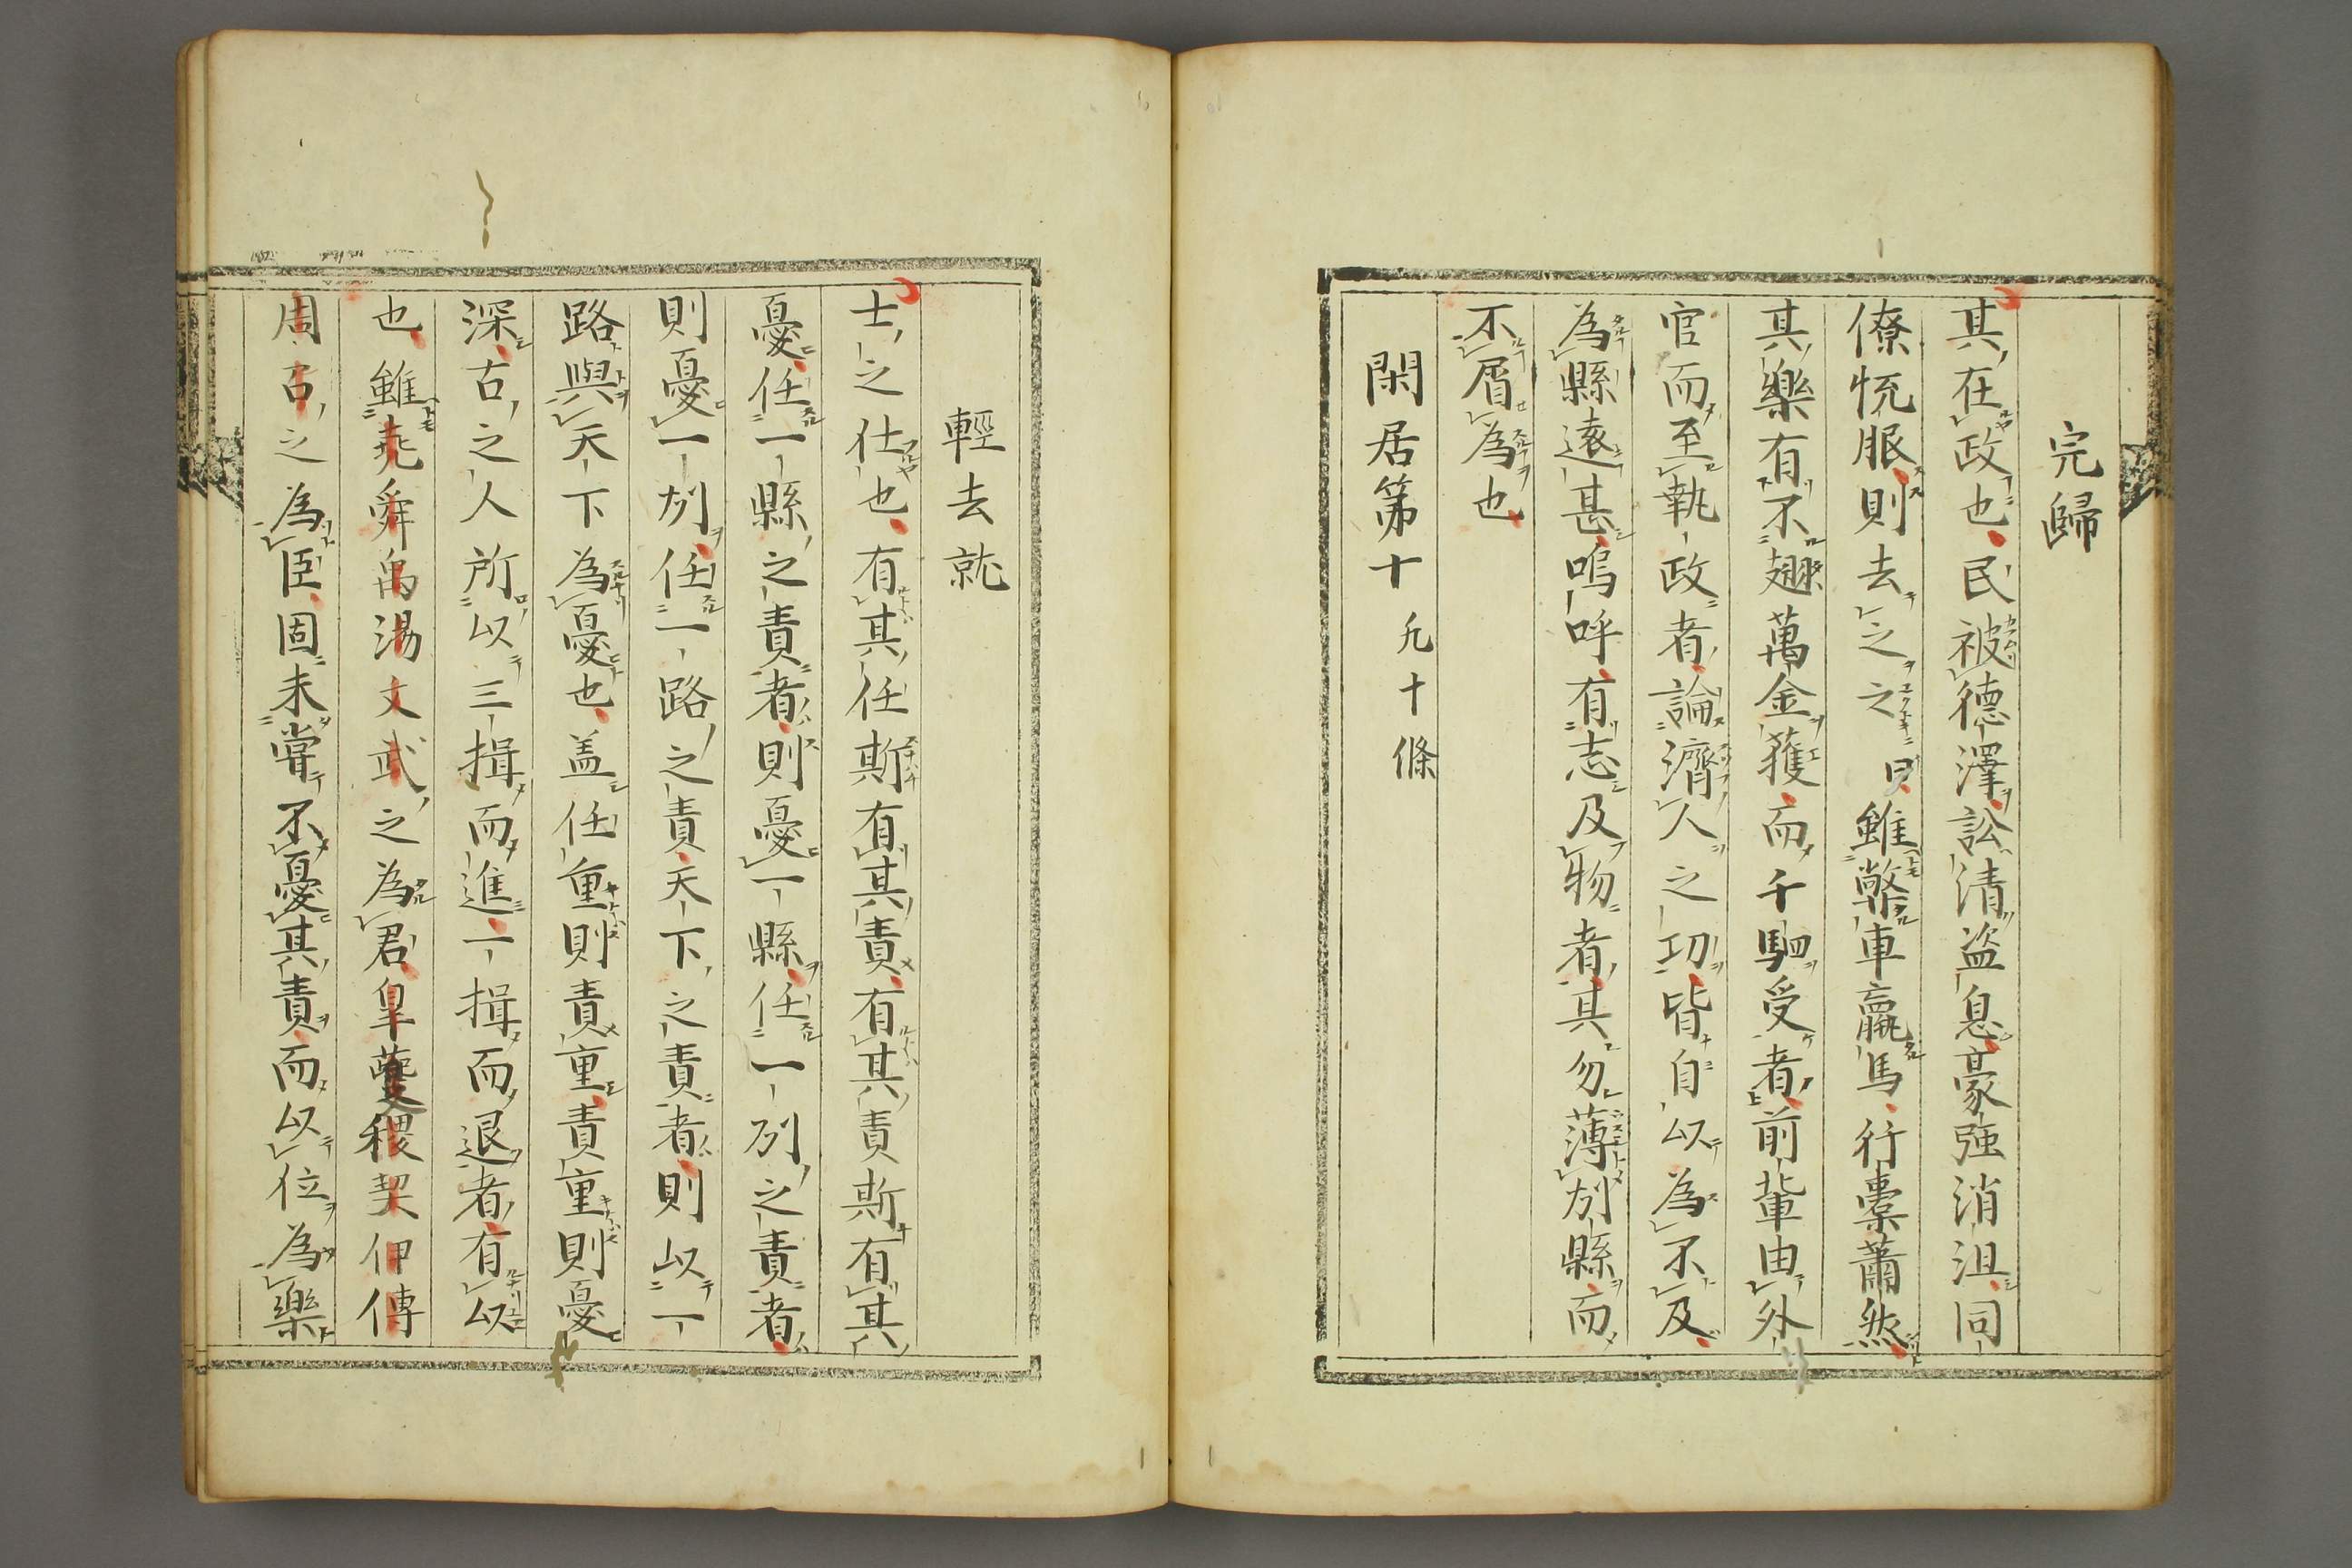 完歸
其在政也民被德澤訟清盗息豪强消沮同
僚恱服則去之之日雖弊車羸馬行槖蕭然
其樂有不翅萬金獲而千駟受者前輩由外
官而至執政者論濟人之功皆自以為不及
為縣遠甚嗚呼有志及物者其勿薄州縣而
不屑為也
閑居第十 凡十條
輕去就
士之仕也有其任斯有其責有其責斯有其
憂任一縣之責者則憂一縣任一州之責者
則憂一州任一路之責者則以一
路與天下為憂也盖任重則責重責重則憂
深古之人所以三揖而進一揖而退者有以
也雖堯舜禹湯文武之為君臯夔稷契伊傅
周召之為臣固未嘗不憂其責而以位為樂